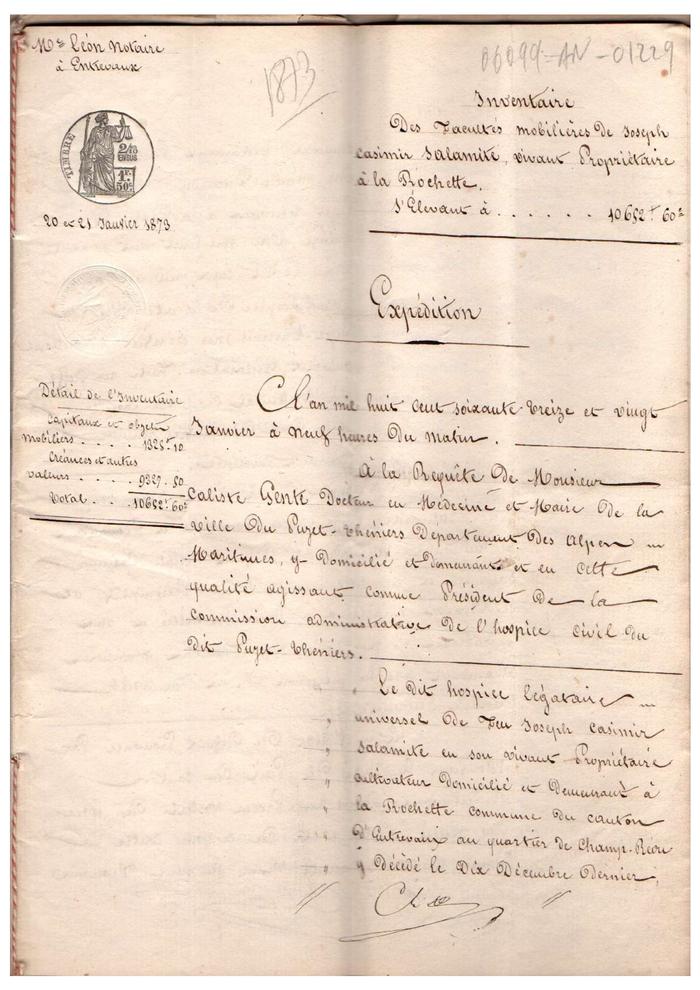 Me Léon Notaire
à Entrevaux
1873
06099-AN-01229
TIMBRE
2/10
EN SUS
1F.
50c.
20 et 21 Janvier 1873
Inventaire
Des Facultés mobilières de Joseph
casimir Salamite, vivant Propriétaire
à la Rochette.
S'Elevant à . . . . . . 10652f 60c
Expédition
Détail de l'Inventaire
Capitaux et objets
mobiliers . . . . 1325f 10
Créances et autres
valeurs . . . . . 9327. 50
Total . . 10652f 60c
L'an mil huit cent soixante treize et vingt
Janvier à neuf heures du matin.
à la Requête de Monsieur
Caliste Genté Docteur en Médecine et Maire de la
ville du Puget-Théniers Département des Alpes
Maritimes, y domicilié et demeurant et en cette
qualité agissant comme Président de la
commission administrative de l'hospice civil du
dit Puget-Théniers.
Le dit hospice légataire
universel de feu Joseph casimir
Salamite en son vivant Propriétaire
cultivateur domicilié et demeurant à
la Rochette commune du canton
d'Entrevaux au quartier de Champ-
y décédé le Dix Décembre dernier,